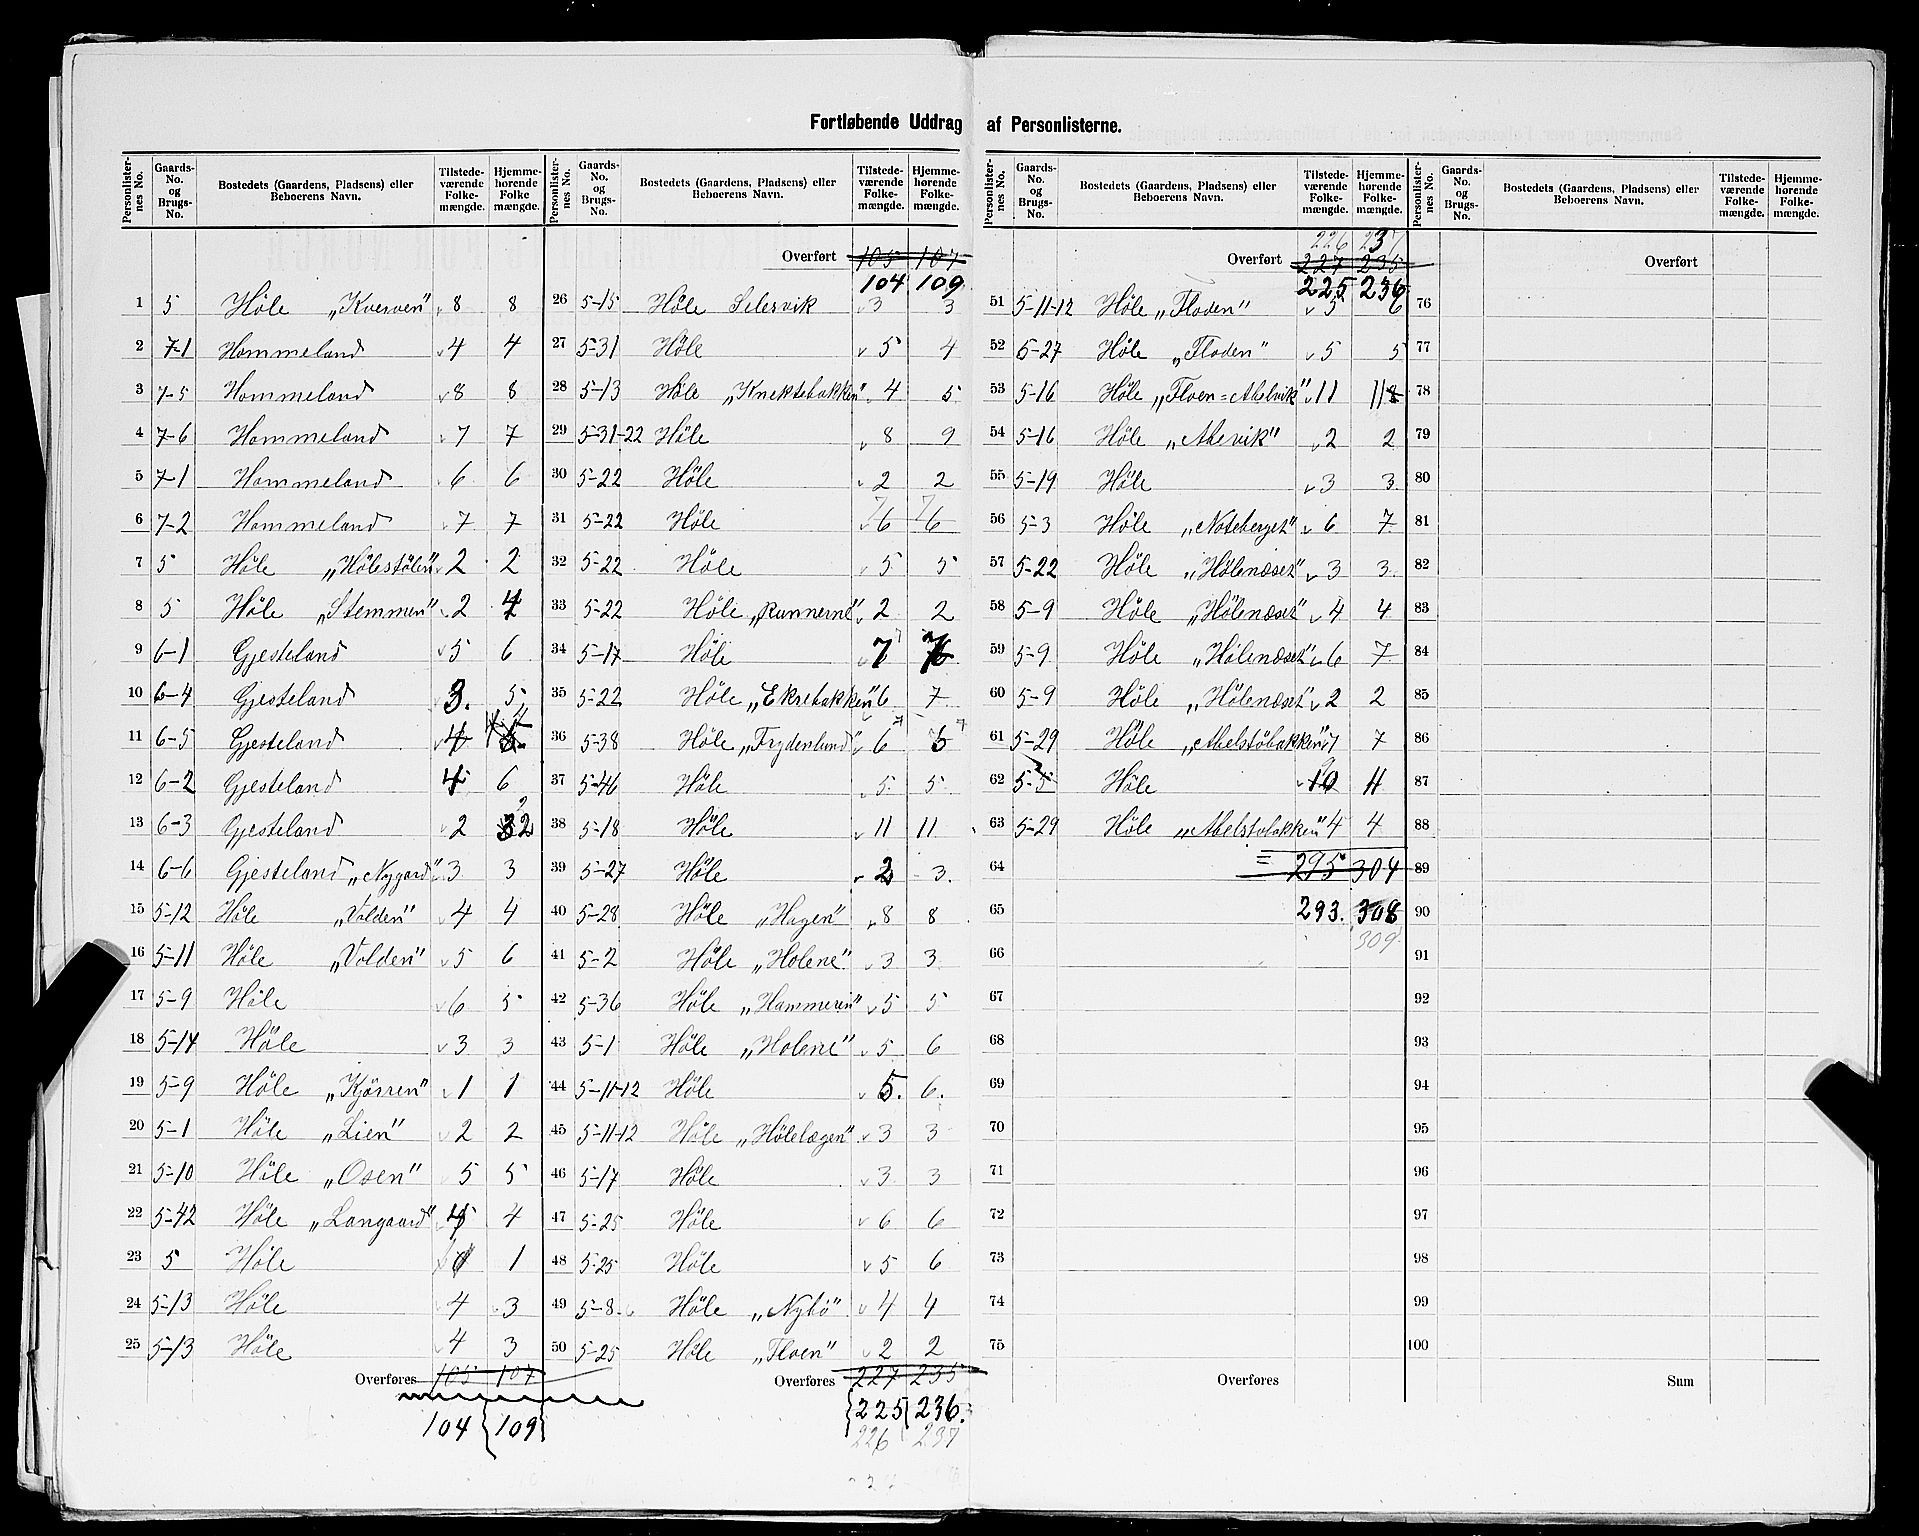 Fortløbende Uddrag af Personlisterne.
Personlister-nes No. Gaards-No. og Brugs-No. Bostedets (Gaardens, Pladsens) eller Beboerens Navn. Tilstede-værende Folke-mængde. Hjemme-hørende Folke mængde.
1 5 Höle „Kversven" 8 8
2 7-1 Hommeland 4 4
3 7-5 Hommeland 8 8
4 7-6 Hommeland 7 7
5 7-1 Hommeland 6 6
6 7-2 Hommeland 7 7
7 5 Höle „Hölestölen" 2 2
8 5 Höle „Stemmen" 2 4
9 6-1 Gjesteland 5 6
10 6-4 Gjesteland 3. 5
11 6-5 Gjesteland 4
12 6-2 Gjesteland 4 6
13 6-3 Gjesteland 2 2
14 6-6 Gjesteland „Nygard" 3 3
15 5-12 Höle „Volden" 4 4
16 5-11 Höle „Volden" 5 6
17 5-9 Höle 6 5
18 5-14 Höle 3 3
19 5-9 Höle „Kjörren" 1 1
20 5-1 Höle „Lien" 2 2
21 5-10 Höle „Osen" 5 5
22 5-42 Höle „Langaard" 4
23 5 Höle 1
24 5-13 Höle 4 3
25 5-13 Höle 4 3
Overføres 105 107
104 109
Personlister-nes No. Gaards-No. og Brugs-No. Bostedets (Gaardens, Pladsens) eller Beboerens Navn. Tilstede-værende Folke-mængde. Hjemme-hørende Folke-mængde.
Overført 105 107
104 109
26 5-15 Höle Selesvik 3 3
27 5-31 Höle 5 4
28 5-13 Höle „Knektebakken" 4 5
29 5-31-22 Höle 8 9
30 5-22 Höle 2 2
7 7
31 5-22 Höle 6 6
32 5-22 Höle 5 5
33 5-22 Höle „Runnerne" 2 2
34 5-17 Höle 7
35 5-22 Höle „Ekrebakken" 6 7
36 5-38 Höle „Frydenlund" 6
37 5-46 Höle 5 5
38 5-18 Höle 11 11
39 5-27 Höle 2 3.
40 5-28 Höle „Hagen" 8 8
41 5-2 Höle „Holene" 3 3
42 5-36 Höle „Hammeren" 5 5
43 5-1 Höle „Holene" 5 6
44 5-11-12 Höle 5. 6.
45 5-11-12 Höle „Hölelægen" 3 3
46 5-17 Höle 3 3
47 5-25 Höle 6 6
48 5-25 Höle 5 6
49 5-8 Höle „Nybö" 4 4
50 5-25 Höle „Floen" 2 2
Overføres 227 235
225 236.
226 237
Personlister-nes No. Gaards-No. og Brugs-No. Bostedets (Gaardens, Pladsens) eller Beboerens Navn. Tilstede-værende Folke-mængde. Hjemme-hørende Folke-mængde.
226 237
Overført 227 235
225 236
51 5-11-12 Höle „Floden" 5 6
52 5-27 Höle „Floden" 5 5
53 5-16 Höle „Floen=Abelvik" 11 11
54 5-16 Höle „Abevik" 2 2
55 5-19 Höle 3 3
56 5-3 Höle „Noteberget" 6 7
57 5-22 Höle „Hölenæset" 3 3
58 5-9 Höle „Hölenæset" 4 4
59 5-9 Höle „Hölenæset" 6 7
60 5-9 Höle „Hölenæset" 2 2
61 5-29 Höle „Abelstöbakken" 7 7
62 5-5 Höle 10 11
63 5-29 Höle „Abelstobakken" 4 4
64 = 295 304
65 293. 308
309
66
67
68
69
70
71
72
73
74
75
Overføres
Personlister-nes No. Gaards-No. og Brugs-No. Bostedets (Gaardens, Pladsens) eller Beboerens Navn. Tilstede-værende Folke-mængde. Hjemme-hørende Folke-mængde.
Overført
76
77
78
79
80
81
82
83
84
85
86
87
88
89
90
91
92
93
94
95
96
97
98
99
100
Sum